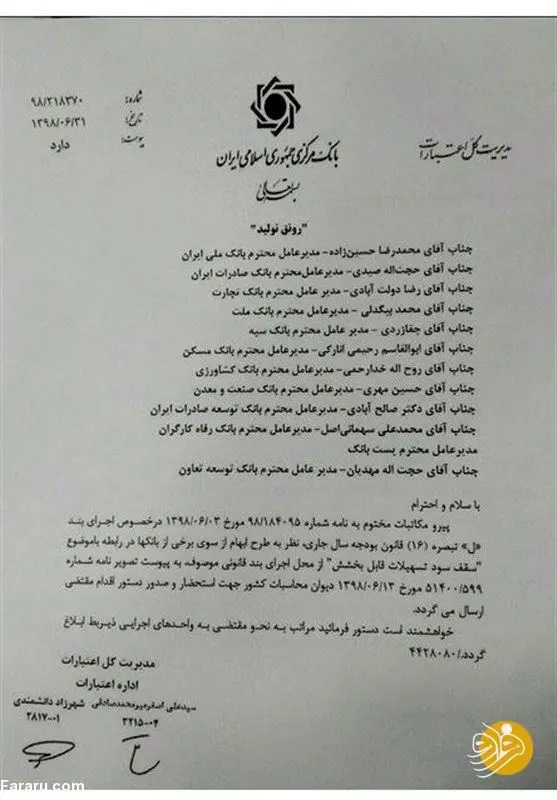 شماره: ۹۸/۲۱۸۳۷۰
تاریخ: ۱۳۹۸/۰۶/۳۱
پیوست: دارد
مدیریت کل اعتبارات
بانک مرکزی جمهوری اسلامی ایران
بسمه تعالی
"رونق تولید"
جناب آقای محمدرضا حسین‌زاده- مدیرعامل محترم بانک ملی ایران
جناب آقای حجت‌اله صیدی- مدیرعامل محترم بانک صادرات ایران
جناب آقای رضا دولت آبادی- مدیر عامل محترم بانک تجارت
جناب آقای محمد بیگدلی - مدیرعامل محترم بانک ملت
جناب آقای چقازردی - مدیر عامل محترم بانک سپه
جناب آقای ابوالقاسم رحیمی انارکی- مدیرعامل محترم بانک مسکن
جناب آقای روح اله خدارحمی - مدیرعامل محترم بانک کشاورزی
جناب آقای حسین مهری- مدیرعامل محترم بانک صنعت و معدن
جناب آقای دکتر صالح آبادی- مدیرعامل محترم بانک توسعه صادرات ایران
جناب آقای محمدعلی سهمانی‌اصل- مدیرعامل محترم بانک رفاه کارگران
مدیرعامل محترم پست بانک
جناب آقای حجت اله مهدیان- مدیر عامل محترم بانک توسعه تعاون
با سلام و احترام
پیرو مکاتبات مختوم به نامه شماره ۹۸/۱۸۴۰۹۵ مورخ ۱۳۹۸/۰۶/۰۳ درخصوص اجرای بند
«ل» تبصره (۱۶) قانون بودجه سال جاری، نظر به طرح ابهام از سوی برخی از بانکها در رابطه باموضوع
"سقف سود تسهیلات قابل بخشش" از محل اجرای بند قانونی موصوف، به پیوست تصویر نامه شماره
۵۱۴۰۰/۵۹۹ مورخ ۱۳۹۸/۰۶/۱۳ دیوان محاسبات کشور جهت استحضار و صدور دستور اقدام مقتضی
ارسال می گردد.
خواهشمند است دستور فرمائید مراتب به نحو مقتضی به واحدهای اجرایی ذیربط ابلاغ
گردد./۴۴۲۸۰۸۰
مدیریت کل اعتبارات
اداره اعتبارات
سیدعلی اصغر میرمحمدصادقی شهرزاد دانشمندی
۳۲۱۵-۰۴ ۲۸۱۷-۰۱
فرارو
Fararu.com